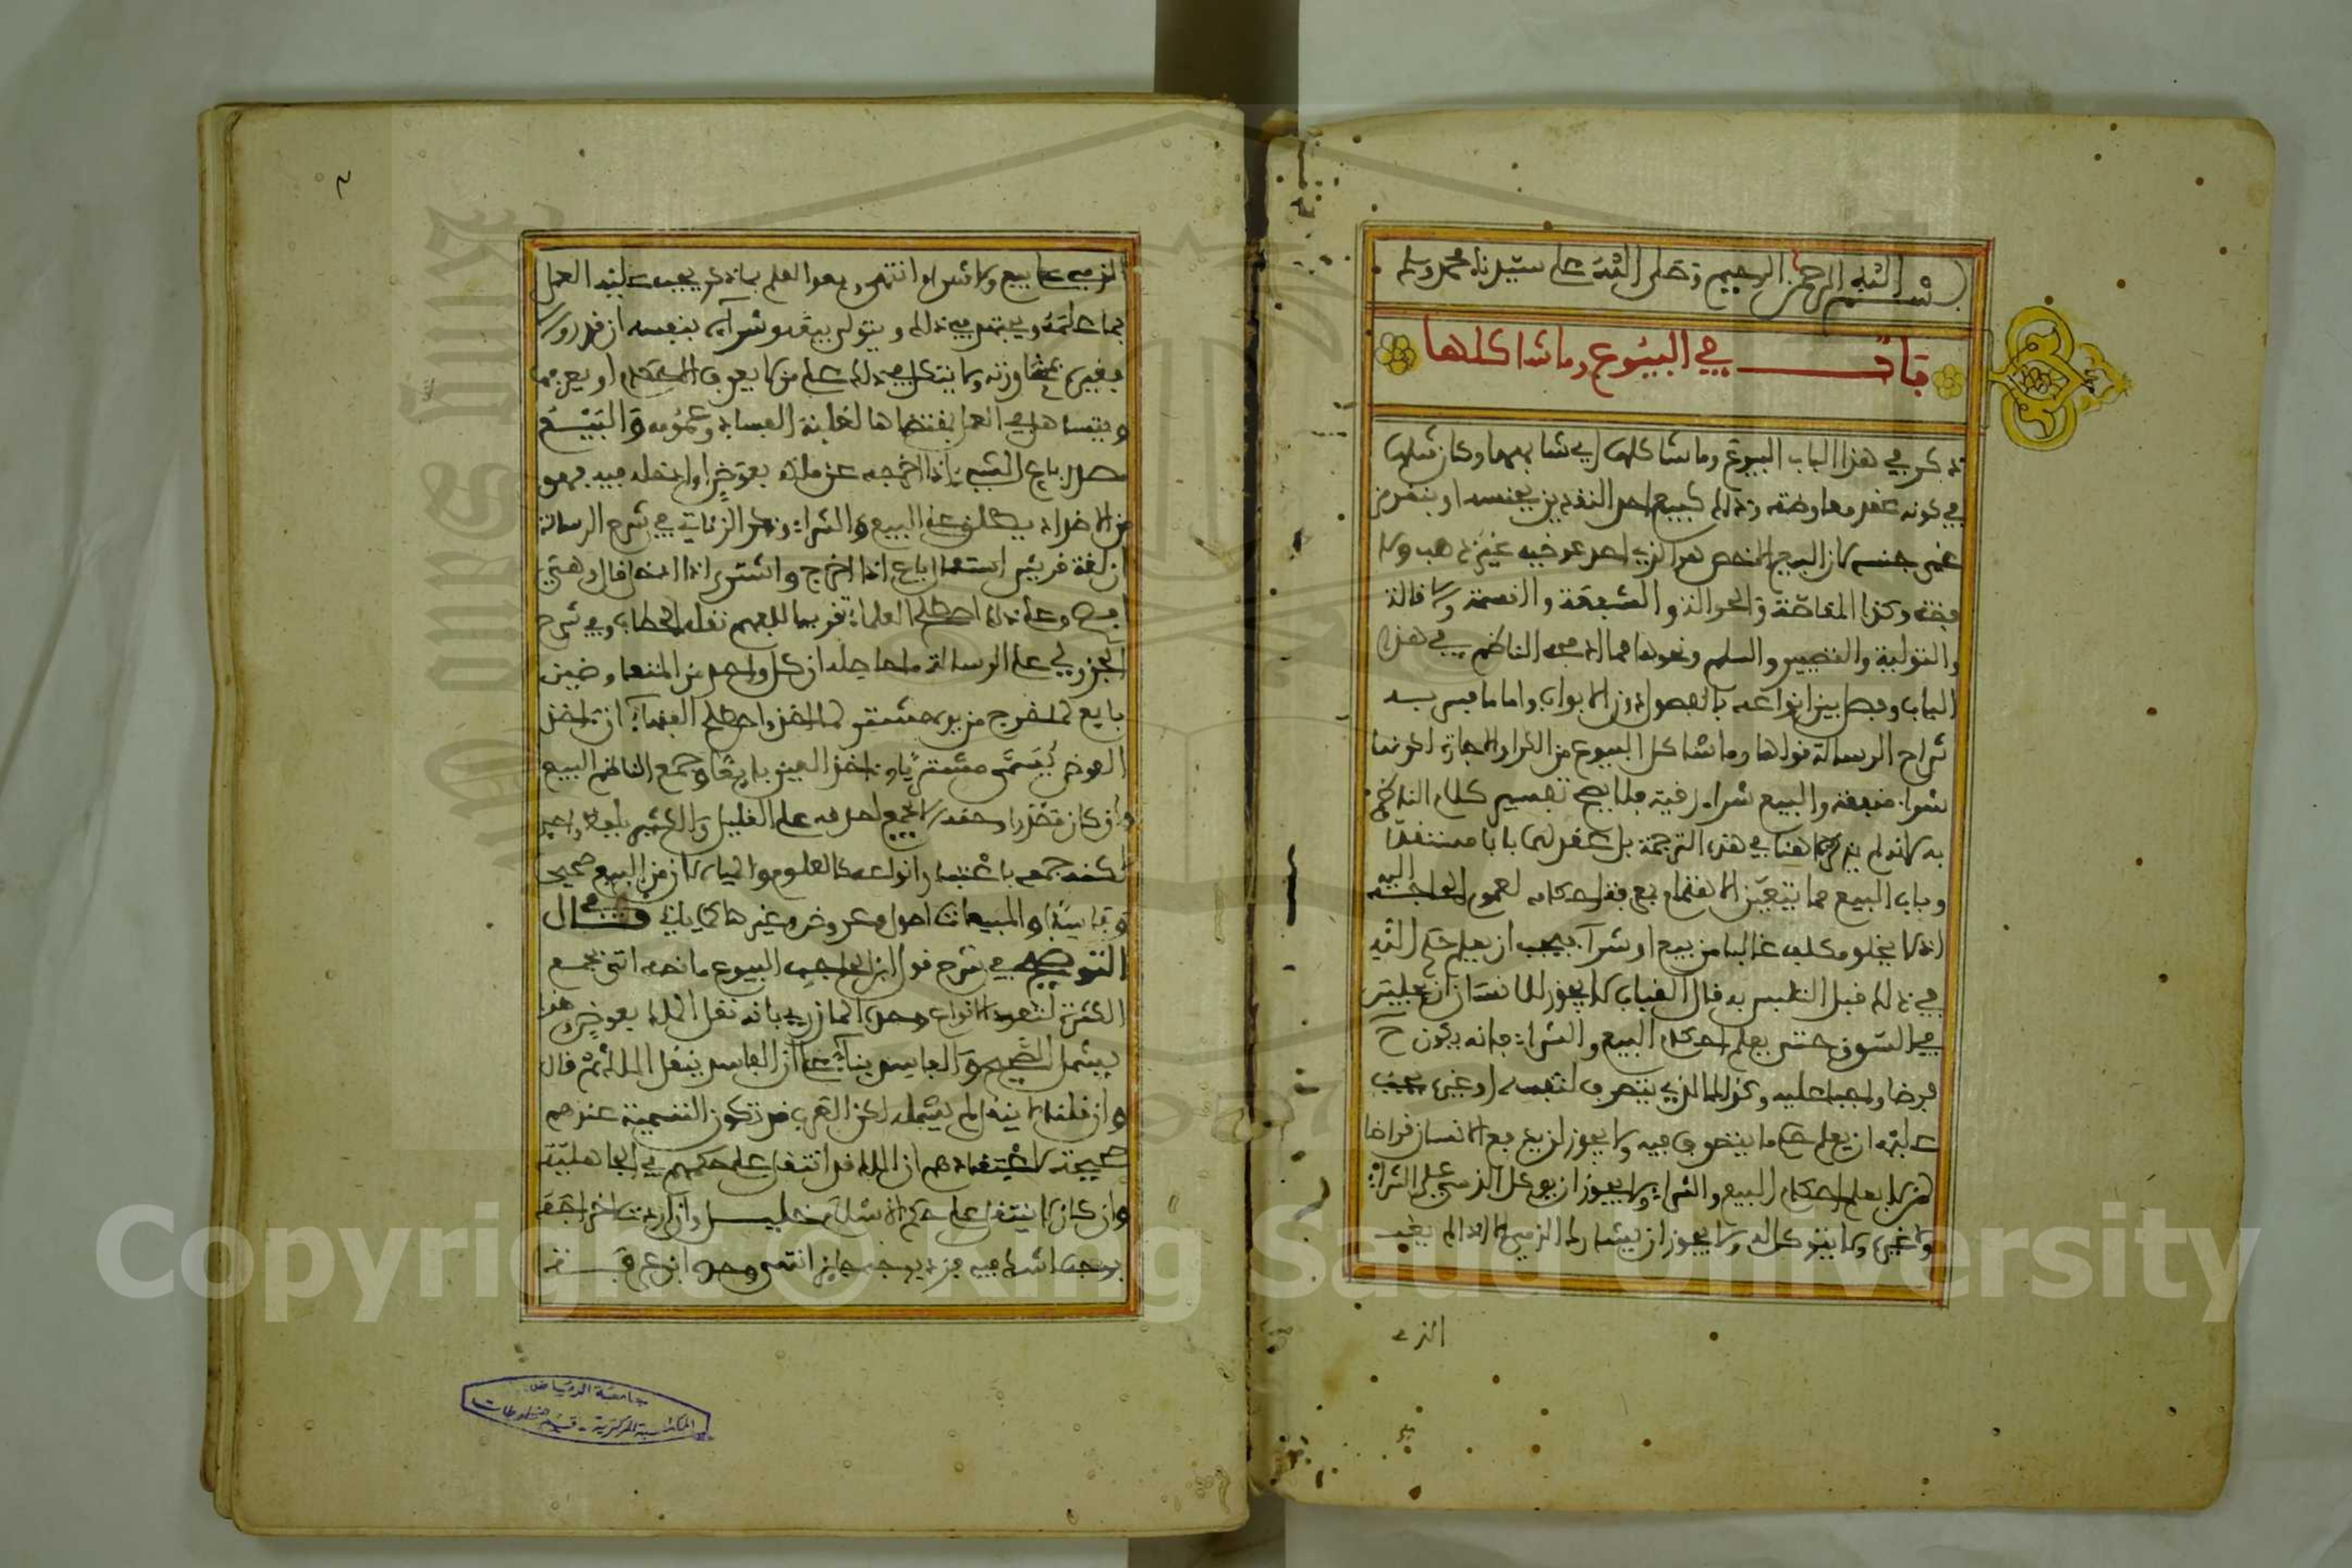 بسم الله الرحمن الرحيم وصلى الله على سيدنا محمد وسلم
باب في البيوع وما شاكلها
ذكر في هذا الباب البيوع وما شاكلها اي شابهها وكان مثلها
في كونه عقد معاوضة وذلك كبيع احد النقدين بجنسه او بنقد من
غير جنسه لان البيع الاخص هو الذي احد عوضيه غير ذهب ولا
فضة وكذا المقاصة والحوالة والشفعة والقسمة والاقالة
والتولية والتصيير والسلم ونحوها مما ادخله الناظم في هذا
الباب وفصل بين انواعه بالفصول دون الابواب واما ما فسر به
شراح الرسالة قولها وما شاكل البيوع من الكراء والاجارة لكونها
شراء منفعة والبيع شراء رقبة فلا يصح تفسير كلام الناظم
به لانه لم يذكرها هنا في هذه الترجمة بل عقد لها بابا مستقلا
وباب البيع مما يتعين الاهتمام بمعرفة احكامه لعموم الحاجة اليه
اذ لا يخلو مكلف غالبا من بيع او شراء فيجب ان يعلم حكم الله
في ذلك قبل التلبس به قال القباب لا يجوز للانسان ان يجلس
في السوق حتى يعلم احكام البيع والشراء فانه يكون ح
فرضا واجبا عليه وكذلك الذي يتصرف لنفسه او غيره يجب
عليه ان يعلم حكم ما يتصرف فيه ولا يجوز ان يدفع الانسان قراضا
لمن لا يعلم احكام البيع والشراء ولا يجوز ان يوكل الذمي على الشراء
ولا غيره ولا يتوكل له ولا يجوز ان يشارك الذمي الا اذا لم يغب
الذي
الذمي على بيع ولا شراء انتهى وبعد العلم بما ذكر يجب عليه العمل
بما علمه ويجتهد في ذلك ويتولى بيعه وشراءه بنفسه ان قدر والا
فغيره بمشاورته ولا يتكل في ذلك على من لا يعرف الاحكام او يعرفها
ويتساهل في العمل بمقتضاها لغلبة الفساد وعمومه والبيع
مصدر باع الشيء اذا اخرجه عن ملكه بعوض او ادخله فيه فهو
من الاضداد يطلق على البيع والشراء وذكر الزناتي في شرح الرسالة
ان لغة قريش استعمال باع اذا اخرج واشترى اذا ادخل قال وهي
افصح وعلى ذلك اصطلح العلماء تقريبا للفهم نقله الحطاب وفي شرح
الجزولي على الرسالة ما حاصله ان كل واحد من المتعاوضين
بايع لما خرج من يده مشتر لما اخذ واصطلح الفقهاء ان اخذ
العوض يسمى مشتريا واخذ العين بايعا وجمع الناظم البيع
وان كان مصدرا وحقه الا يجمع لصدقه على القليل والكثير بلفظ واحد
لكنه جمعه باعتبار انواعه كالعلوم والمياه لان من البيع صحيحا
وفاسدا والمبيعات اصول وعروض وغيرها كما ياتي قال في
التوضيح في شرح قول ابن الحاجب البيوع ما نصه اتى بجمع
الكثرة لتعدد الانواع وحده المازري بانه نقل الملك بعوض وهذا
يشمل الصحيح والفاسد بناء على ان الفاسد ينقل الملك ثم قال
وان قلنا لا ينقله لم يشمله لكن العرب قد تكون التسمية عندهم
صحيحة لاعتقادهم ان الملك قد انتقل على حكمهم في الجاهلية
وان كان لا ينتقل على حكم الاسلام خليل وان اردت اخراجه
بوجه لا شك فيه فزد بوجه جايز انتهى وحده ابن عرفة
جامعة الرياض
المكتبة المركزية - قسم المخطوطات
Copyright © King Saud University